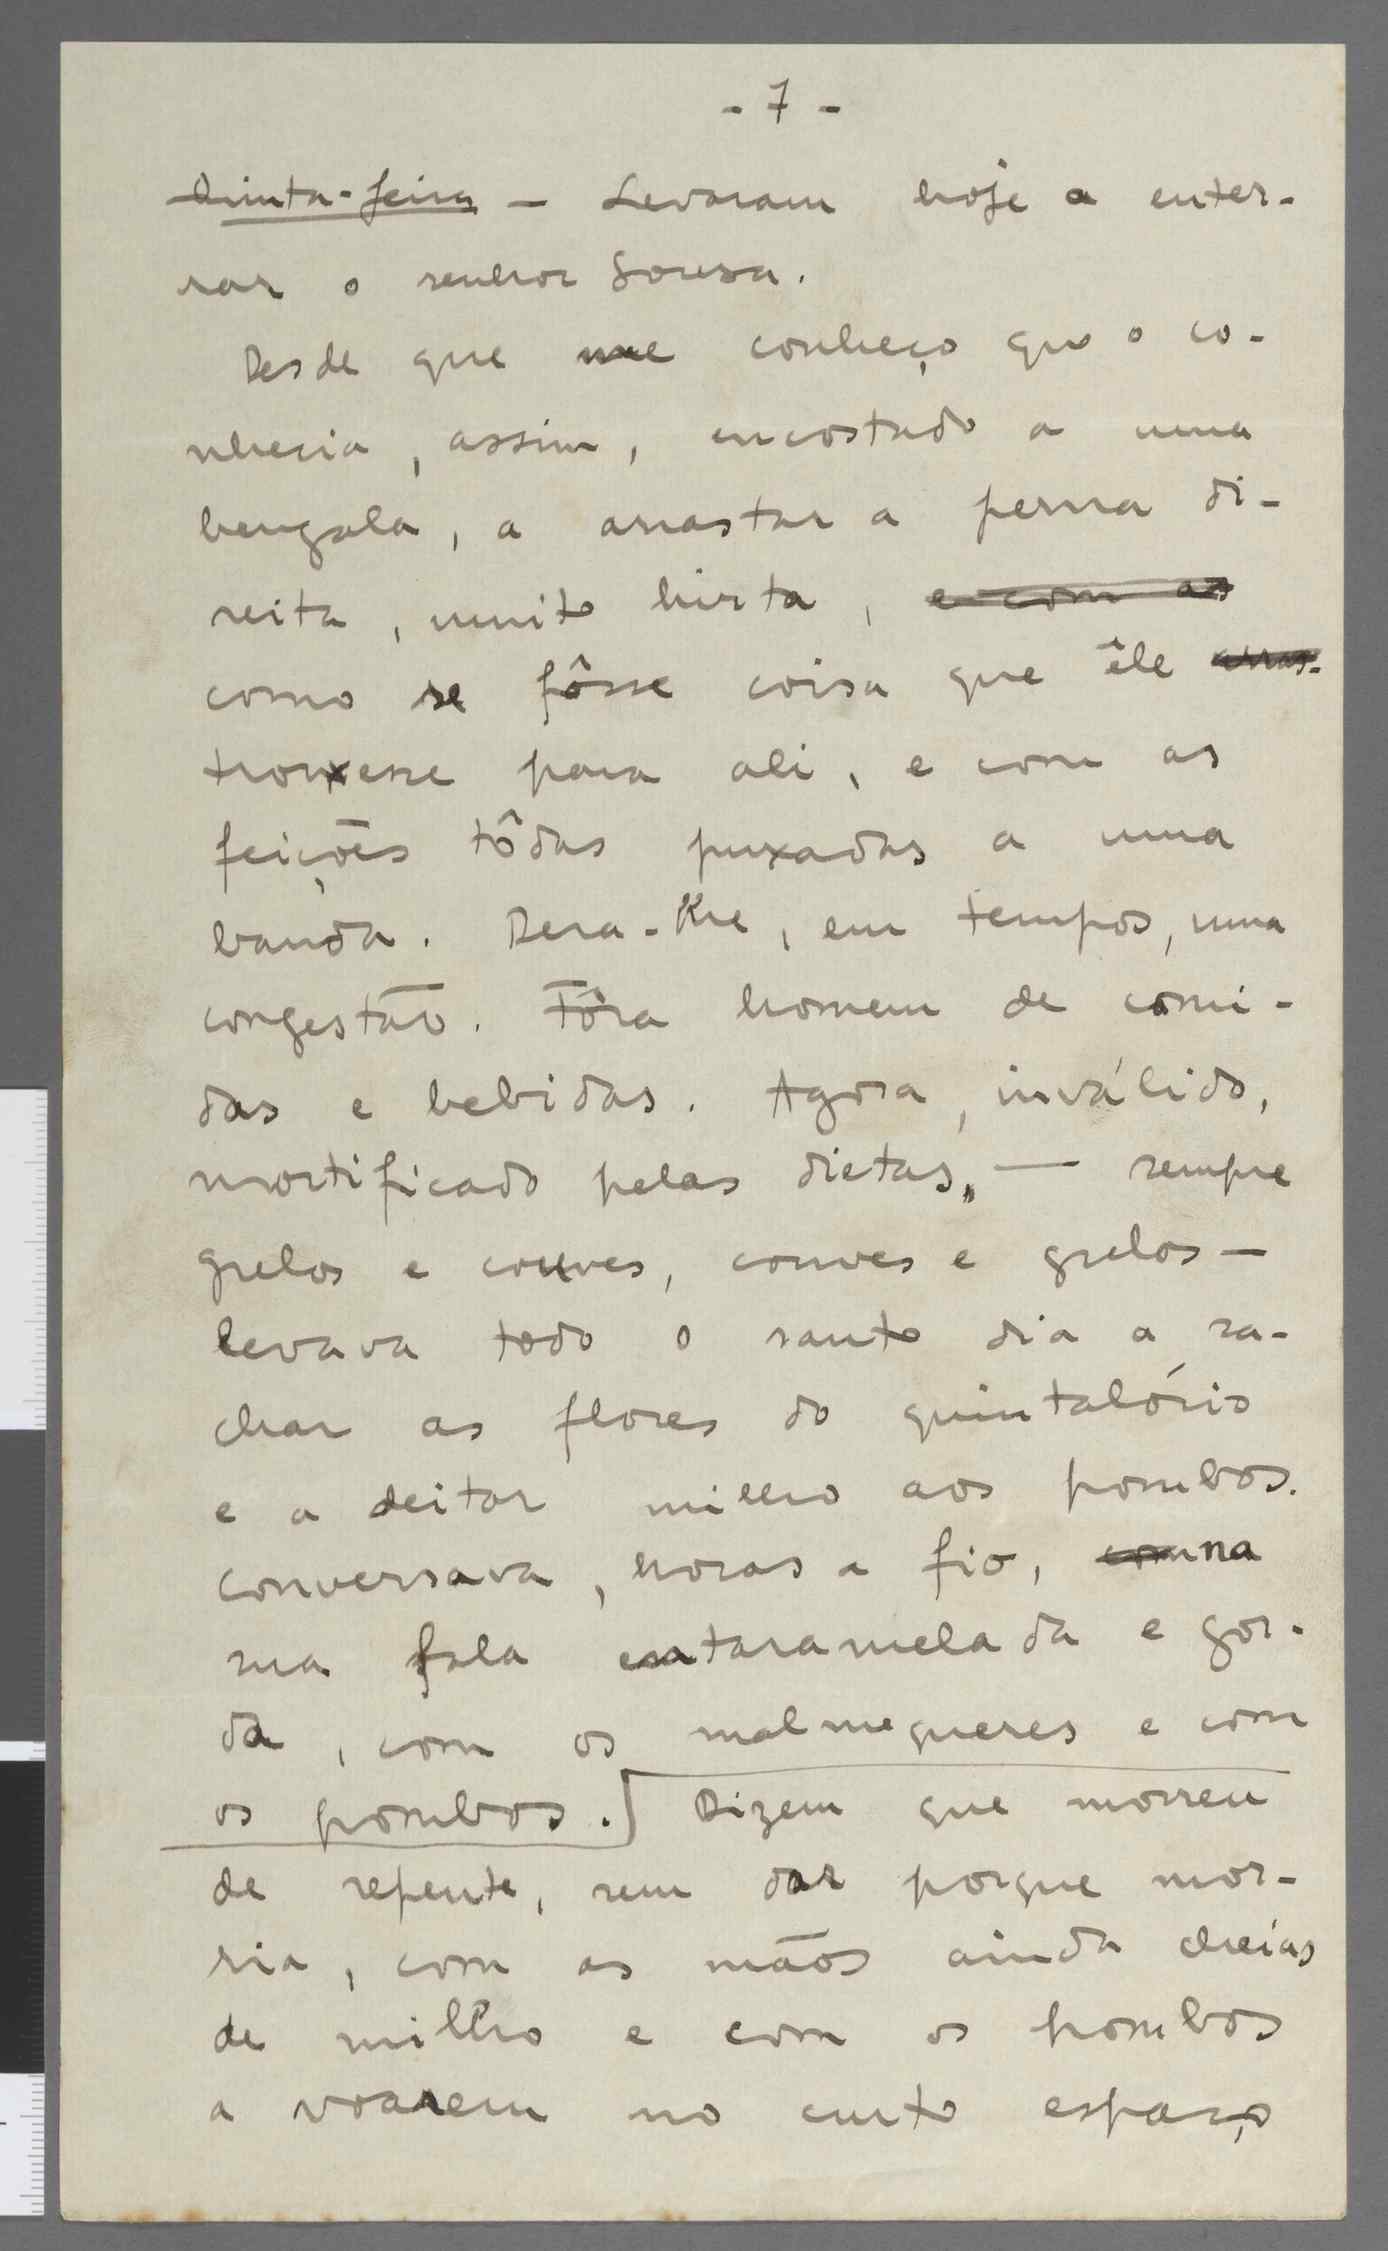 - 7 -
Quinta-feira - Levaram hoje a enter-
rar o senhor Sousa.
Desde que me conheço que o co-
nhecia, assim, encostado a uma
bengala, a arrastar a perna di-
reita, muito hirta, e com as
como se fôsse coisa que êle arras-
trouxesse para ali, e com as
feições tôdas puxadas a uma
banda. Dera-lhe, em tempos, uma
congestão. Fôra homem de comi-
das e bebidas. Agora, inválido,
mortificado pelas dietas, — sempre
grelos e couves, couves e grelos —
levava todo o santo dia a ra-
char as flores do quintalório
e a deitar milho aos pombos.
Conversava, horas a fio, com na
sua fala entaramelada e gor-
da, com os malmequeres e com
os pombos.] Dizem que morreu
de repente, sem dar porque mor-
ria, com as mãos ainda cheias
de milho e com os pombos
a voarem no curto espaço